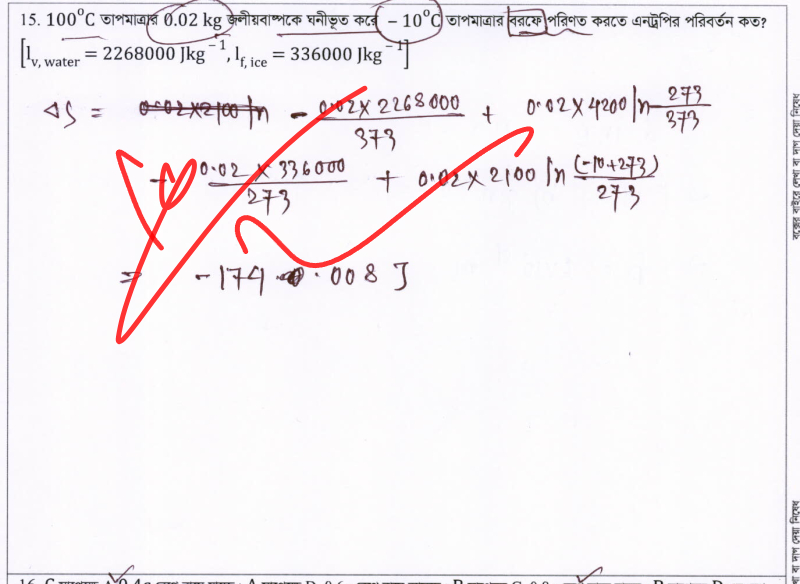 15. 100°C তাপমাত্রার 0.02 kg জলীয়বাষ্পকে ঘনীভূত করে − 10°C তাপমাত্রার বরফে পরিণত করতে এনট্রপির পরিবর্তন কত?
[l_v, water = 2268000 Jkg⁻¹, l_f, ice = 336000 Jkg⁻¹]
ΔS = - 0.02 × 2268000 / 373 + 0.02 × 4200 ln 273/373
- 0.02 × 336000 / 273 + 0.02 × 2100 ln (-10+273)/273
= -174 .008 J
বক্সের বাইরে লেখা বা দাগ দেয়া নিষেধ
বা দাগ দেয়া নিষেধ